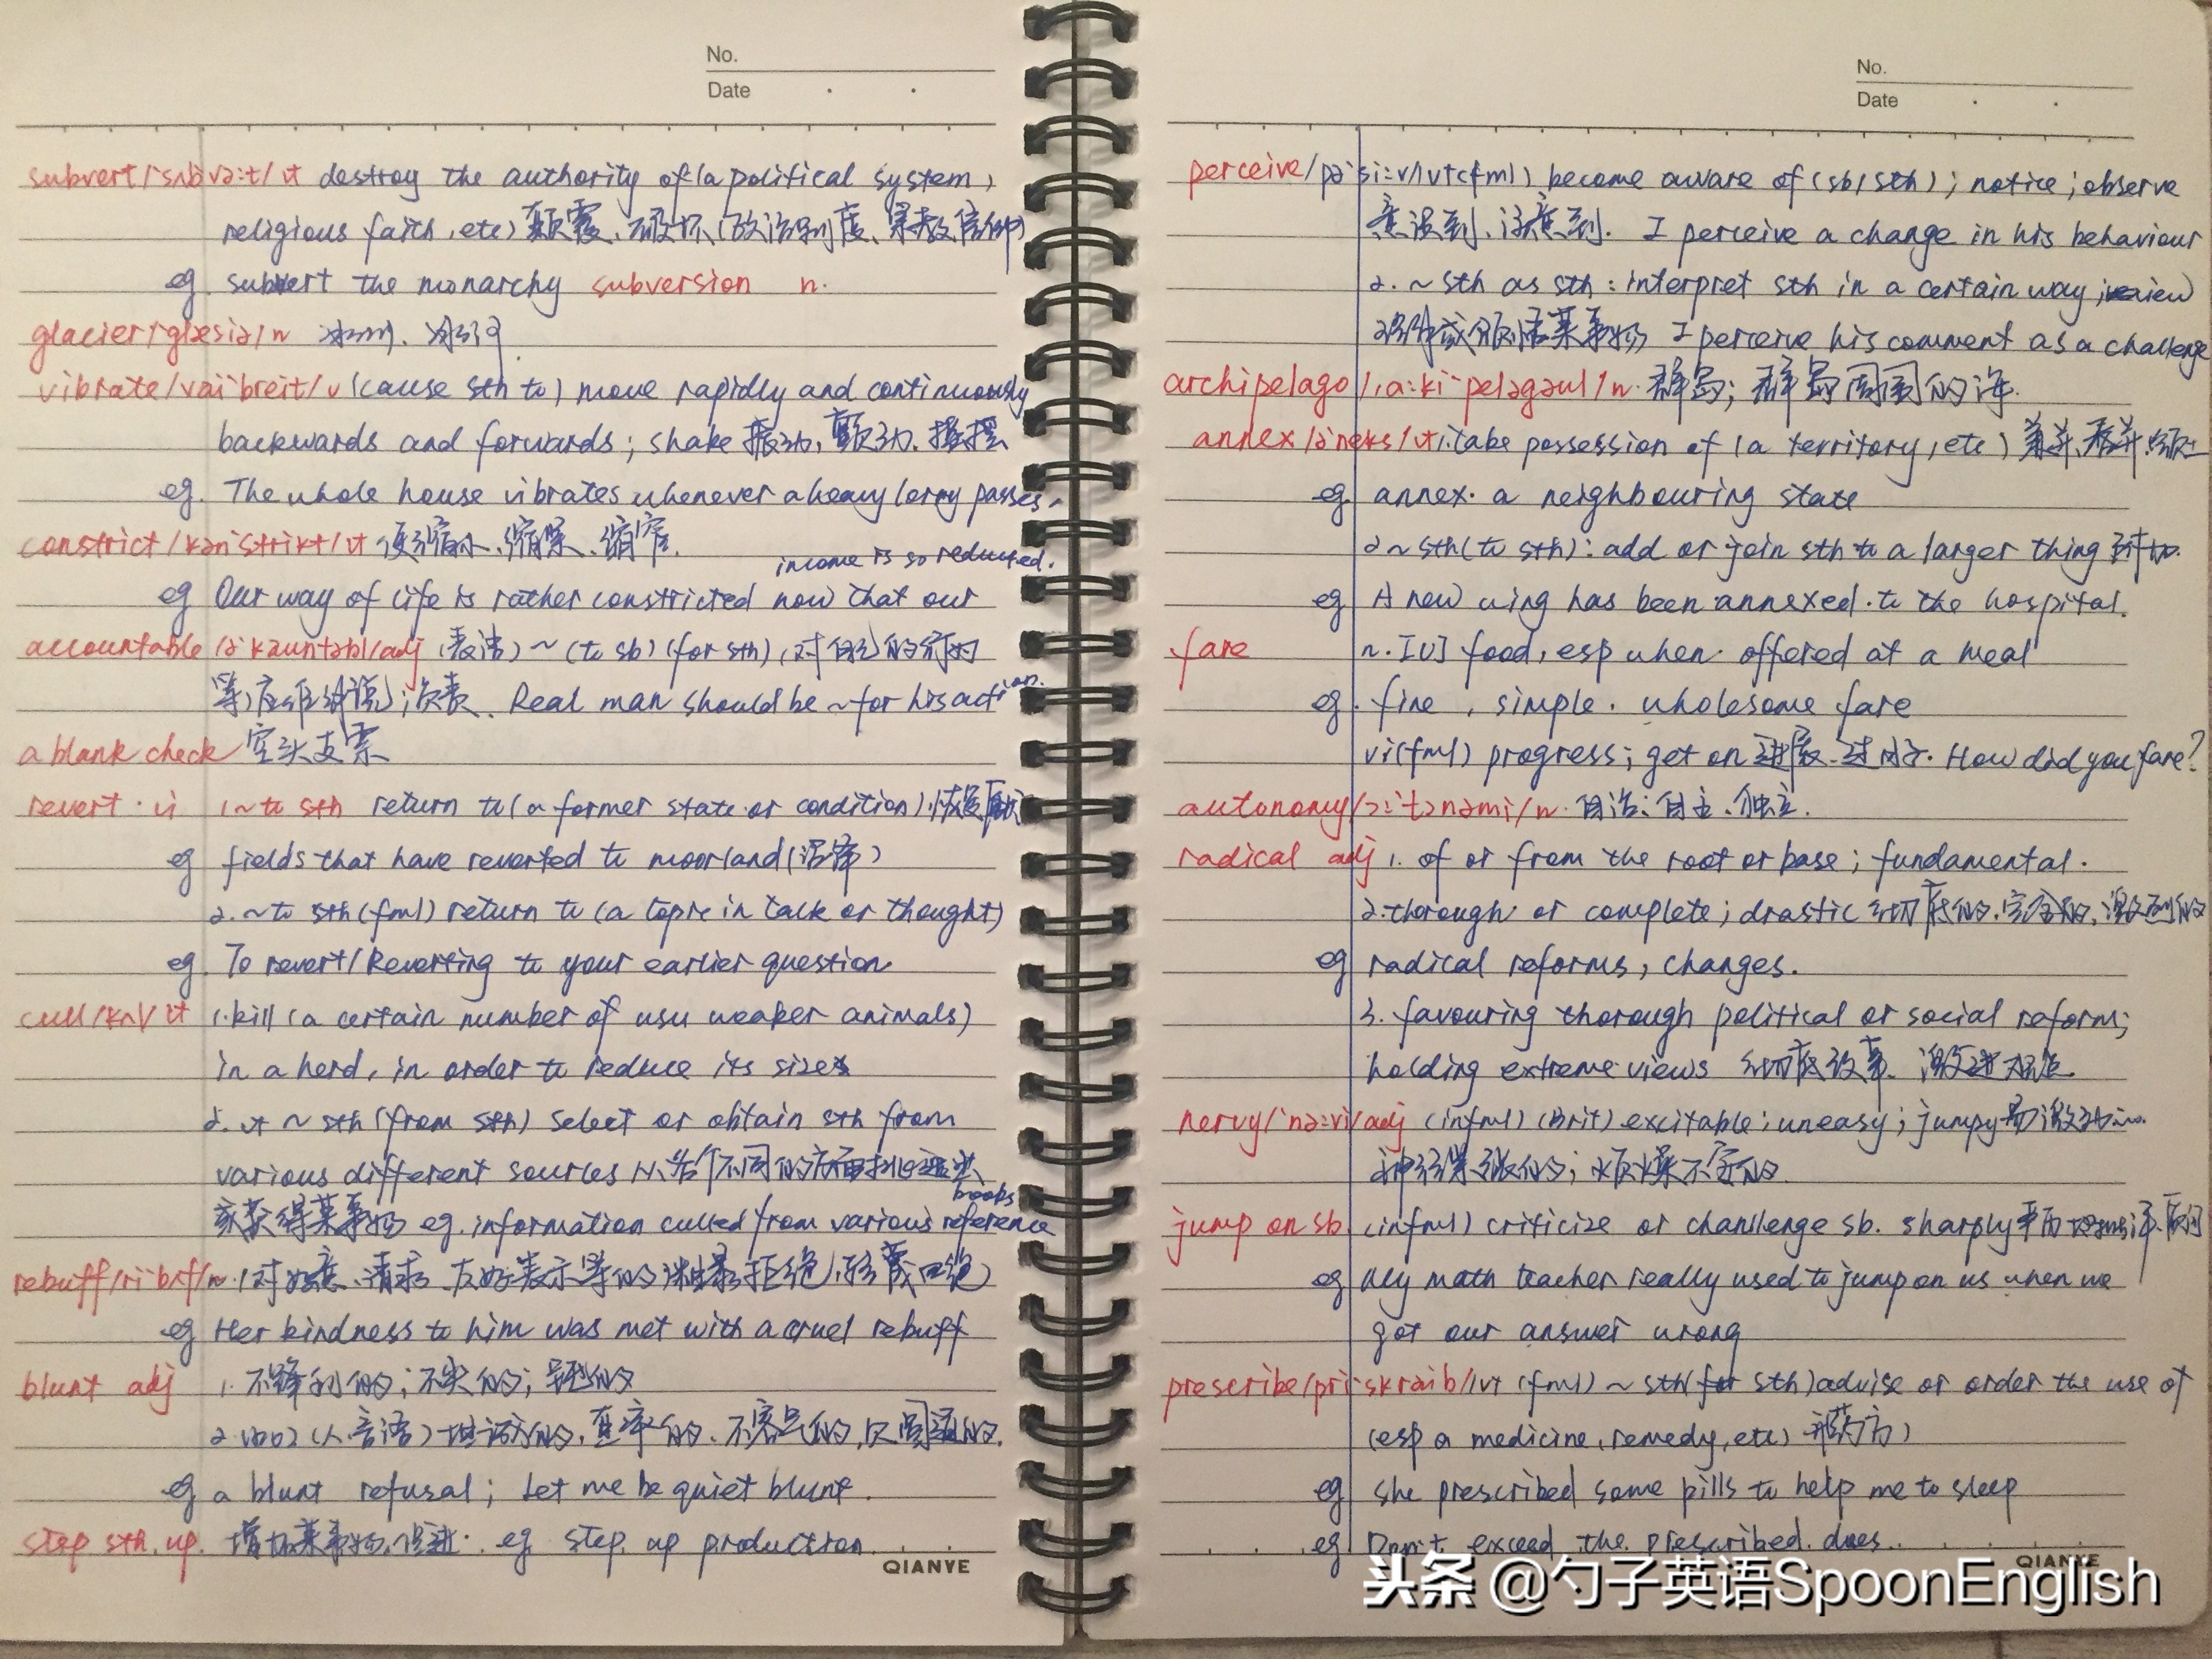 No.
Date
subvert /sʌbˈvə:t/ vt destroy the authority of (a political system,
religious faith, etc) 颠覆、破坏(政治制度、宗教信仰)
eg. subvert the monarchy subversion n.
glacier /ˈglæsiə/ n 冰川、冰河
vibrate /vaiˈbreit/ v (cause sth to) move rapidly and continuously
backwards and forwards; shake 振动,颤动.摇摆
eg. The whole house vibrates whenever a heavy lorry passes.
constrict /kənˈstrikt/ vt 使缩小、缩紧、缩窄.
income is so reducted.
eg Our way of life is rather constricted now that our
accountable /əˈkauntəbl/ adj (表语) ~ (to sb) (for sth),对自己的行为
等)应作解说;负责. Real man should be ~ for his action.
a blank check 空头支票
revert. vi 1~ to sth return to (a former state or condition) 恢复原状
eg fields that have reverted to moorland (沼泽)
2. ~ to sth (fml) return to (a topic in talk or thought)
eg. To revert/Reverting to your earlier question
cull /kʌl/ vt 1. kill (a certain number of usu weaker animals)
in a herd, in order to reduce its size
2. vt ~ sth (from sth) select or obtain sth from
various different sources 从若干不同的方面挑选出
books
或获得某事物 eg. information culled from various reference
rebuff /riˈbʌf/ n. (对好意、请求、友好表示等的)粗暴拒绝,轻蔑回绝)
eg Her kindness to him was met with a cruel rebuff
blunt adj 1. 不锋利的;不尖的;钝的
2. (人、言语)坦诚的,直率的、不客气的,
eg a blunt refusal; Let me be quiet blunt.
step sth. up. 增加某事物,促进. eg. step up production
QIANYE
No.
Date
perceive /pəˈsi:v/ vt (fml) become aware of (sb/sth); notice; observe
意识到、注意到. I perceive a change in his behaviour
2. ~ sth as sth: interpret sth in a certain way; view
理解或领悟某事物 I perceive his comment as a challenge
archipelago /ˌa:kiˈpeləgəu/ n. 群岛; 群岛周围的海.
annex /əˈneks/ vt 1. take possession of (a territory, etc) 兼并、
eg annex. a neighbouring state
2 ~ sth (to sth): add or join sth to a larger thing 附加.
eg A new wing has been annexed. to the hospital.
fare n. [U] food, esp when. offered at a meal
eg. fine, simple. wholesome fare
vi (fml) progress; get on 进展、过日子. How did you fare?
autonomy /ɔ:ˈtɔnəmi/ n. 自治;自主、独立.
radical adj 1. of or from the root or base; fundamental.
2. thorough or complete; drastic 彻底的、完全的、激烈的
eg radical reforms, changes.
3. favouring thorough political or social reform;
holding extreme views 彻底改革、激进
nervy /ˈnə:vi/ adj (infml) (Brit) excitable; uneasy; jumpy 易激动的.
神经紧张的; 烦燥不安的
jump on sb. (infml) criticize or chanllenge sb. sharply
eg My math teacher really used to jump on us when we
got our answer wrong
prescribe /priˈskraib/ vt (fml) ~ sth (for sth) advise or order the use of
(esp a medicine, remedy, etc) 开药方)
eg she prescribed some pills to help me to sleep
eg Don't exceed the prescribed. does.
QIANYE
头条 @勺子英语SpoonEnglish